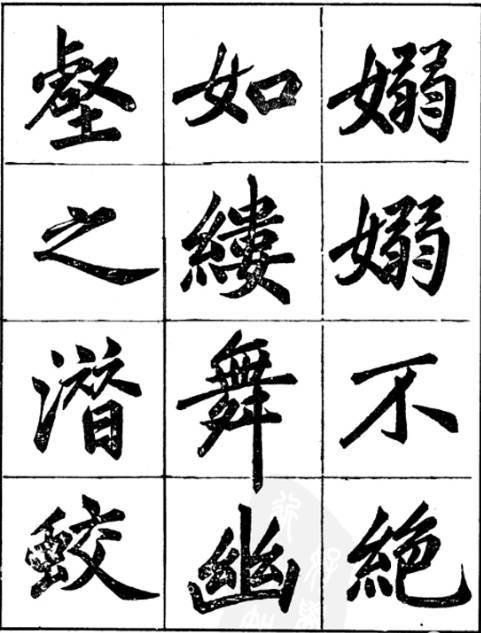 嫋嫋不絕
如縷舞幽
壑之潛蛟